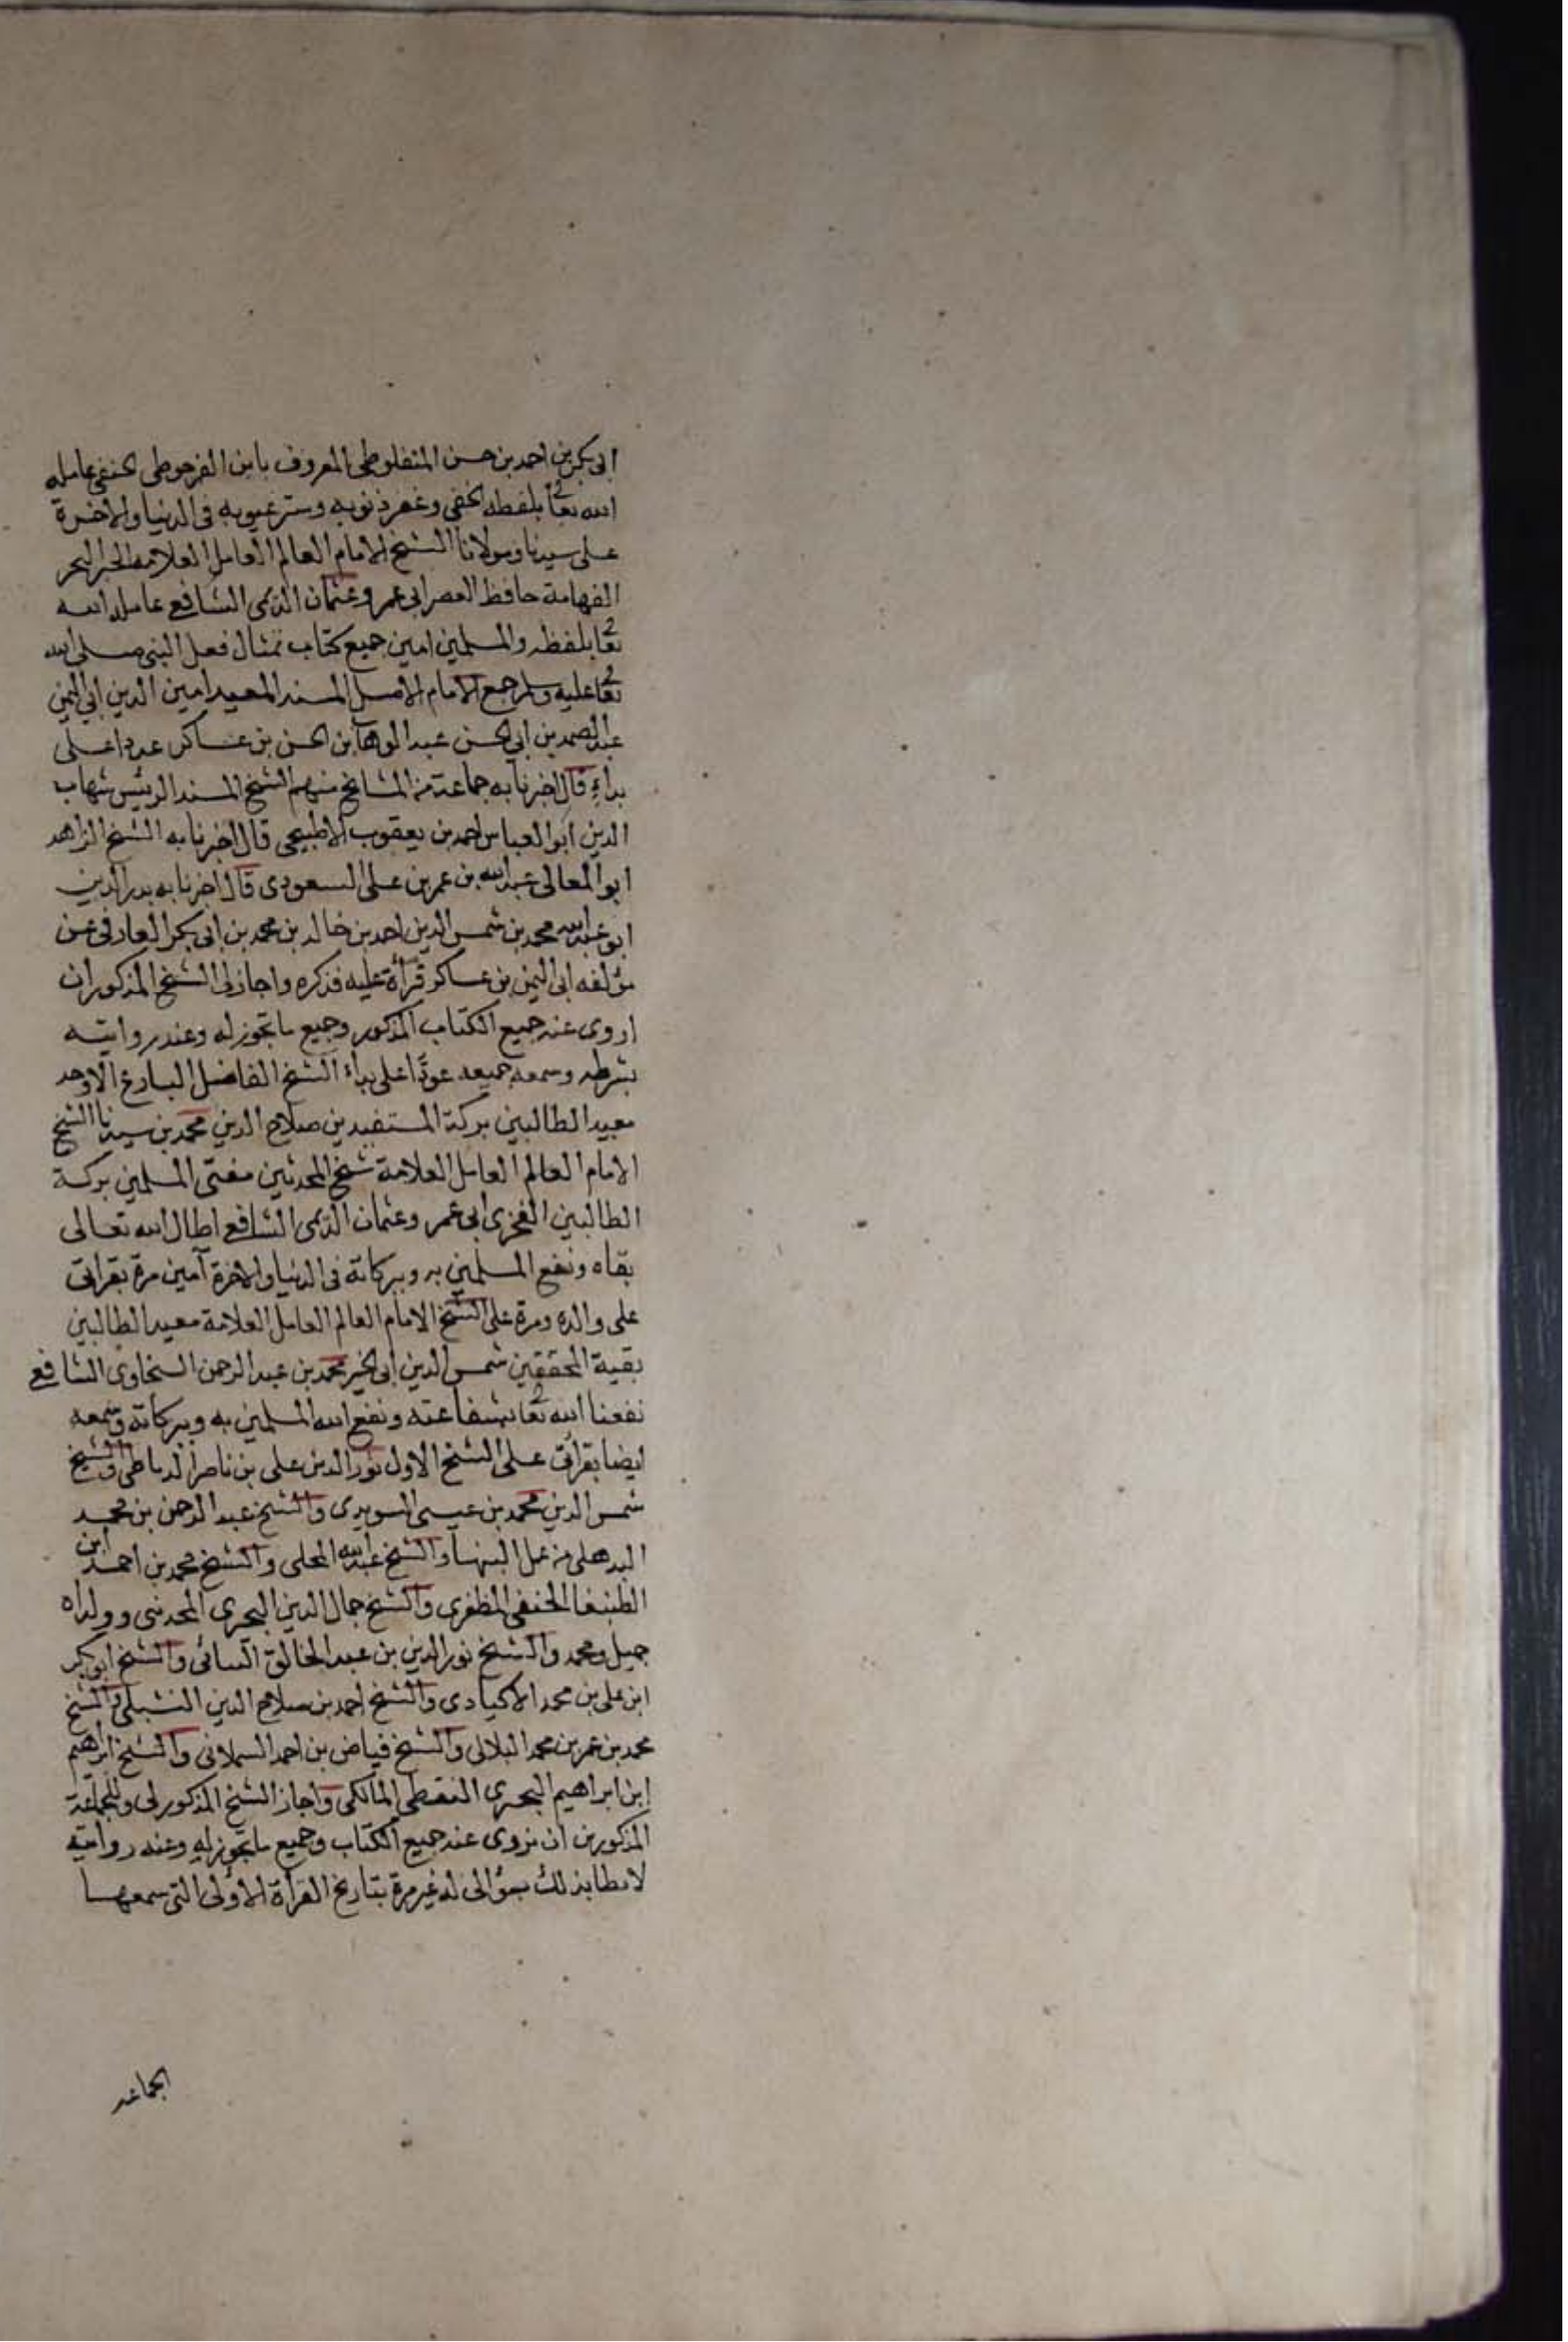 ابى بكر بن احمد بن حسن المنفلوطى المعروف بابن الفرحوطى الحنفى عامله
الله تعا بلفطه الخفى وغفر ذنوبه وستر عيوبه فى الدنيا والاخرة
على سيدنا ومولانا الشيخ الامام العالم العامل العلامة الحبر البحر
الفهامة حافظ العصر ابى عمرو عثمان الديمى الشافع عامله الله
تعا بلفظه والمسلمين امين جميع كتاب تمثال نعل النبى صلى الله
تعا عليه وسلم جمع الامام الاصيل المسند المعيد امين الدين ابى اليمن
عبد الصمد بن ابى الحسن عبد الوهاب بن الحسن بن عساكر عودا على
بداءٍ قال اخبرنا به جماعة من المشايخ منهم الشيخ المسند الرئيس شهاب
الدين ابو العباس احمد بن يعقوب الاطبيحى قال اخبرنا به الشيخ الزاهد
ابو المعالى عبد الله بن عمر بن على السعودى قال اخبرنا به بدر الدين
ابو عبد الله محمد بن شمس الدين احمد بن خالد بن محمد بن ابى بكر الفارقى عن
مؤلفه ابى اليمن بن عساكر قرأة عليه فذكره واجاز لى الشيخ المذكور ان
اروى عنه جميع الكتاب المذكور وجميع ما تجوز له وعنه روايته
بشرطه وسمعه جميعه عودًا على بداء الشيخ الفاضل البارع الاوحد
معيد الطالبين بركة المستفيدين صلاح الدين محمد بن سيدنا الشيخ
الامام العالم العامل العلامة شيخ المحدثين مفتى المسلمين بركة
الطالبين الفخرى ابى عمرو عثمان الديمى الشافع اطال الله تعالى
بقاه ونفع المسلمين به وبركاته فى الدنيا والاخرة آمين مرة بقراتى
على والده ومرة على الشيخ الامام العالم العامل العلامة معيد الطالبين
بقية المحققين شمس الدين ابى الخير محمد بن عبد الرحمن السخاوى الشافع
نفعنا الله تعا بشفاعته ونفع الله المسلمين به وبركاته وسمعه
ايضا بقرأتى على الشيخ الاول نور الدين على بن ناصر الدماطى والشيخ
شمس الدين محمد بن عيسى السويرى والشيخ عبد الرحمن بن محمد
البدهلى من عمل البهنسا والشيخ عبد الله المحلى والشيخ محمد بن احمد ابن
الطنبغا الحنفى المظفرى والشيخ جمال الدين البحرى المحدثى وولداه
جميل ومحمد والشيخ نور الدين بن عبد الخالق السائى والشيخ ابو بكر
ابن على بن محمد الاكيادى والشيخ احمد بن صلاح الدين النشيلى والشيخ
محمد بن عمر بن محمد البلالى والشيخ فياض بن احمد السملانى والشيخ ابراهيم
ابن ابراهيم البحرى المالكى واجاز الشيخ المذكور لى وللجماعة
المذكورين ان نروى عنه جميع الكتاب وجميع ما تجوز له وعنه روايته
بذلك بسؤالى له غير مرة بتاريخ القرأة الاولى التى سمعها
الجماعه